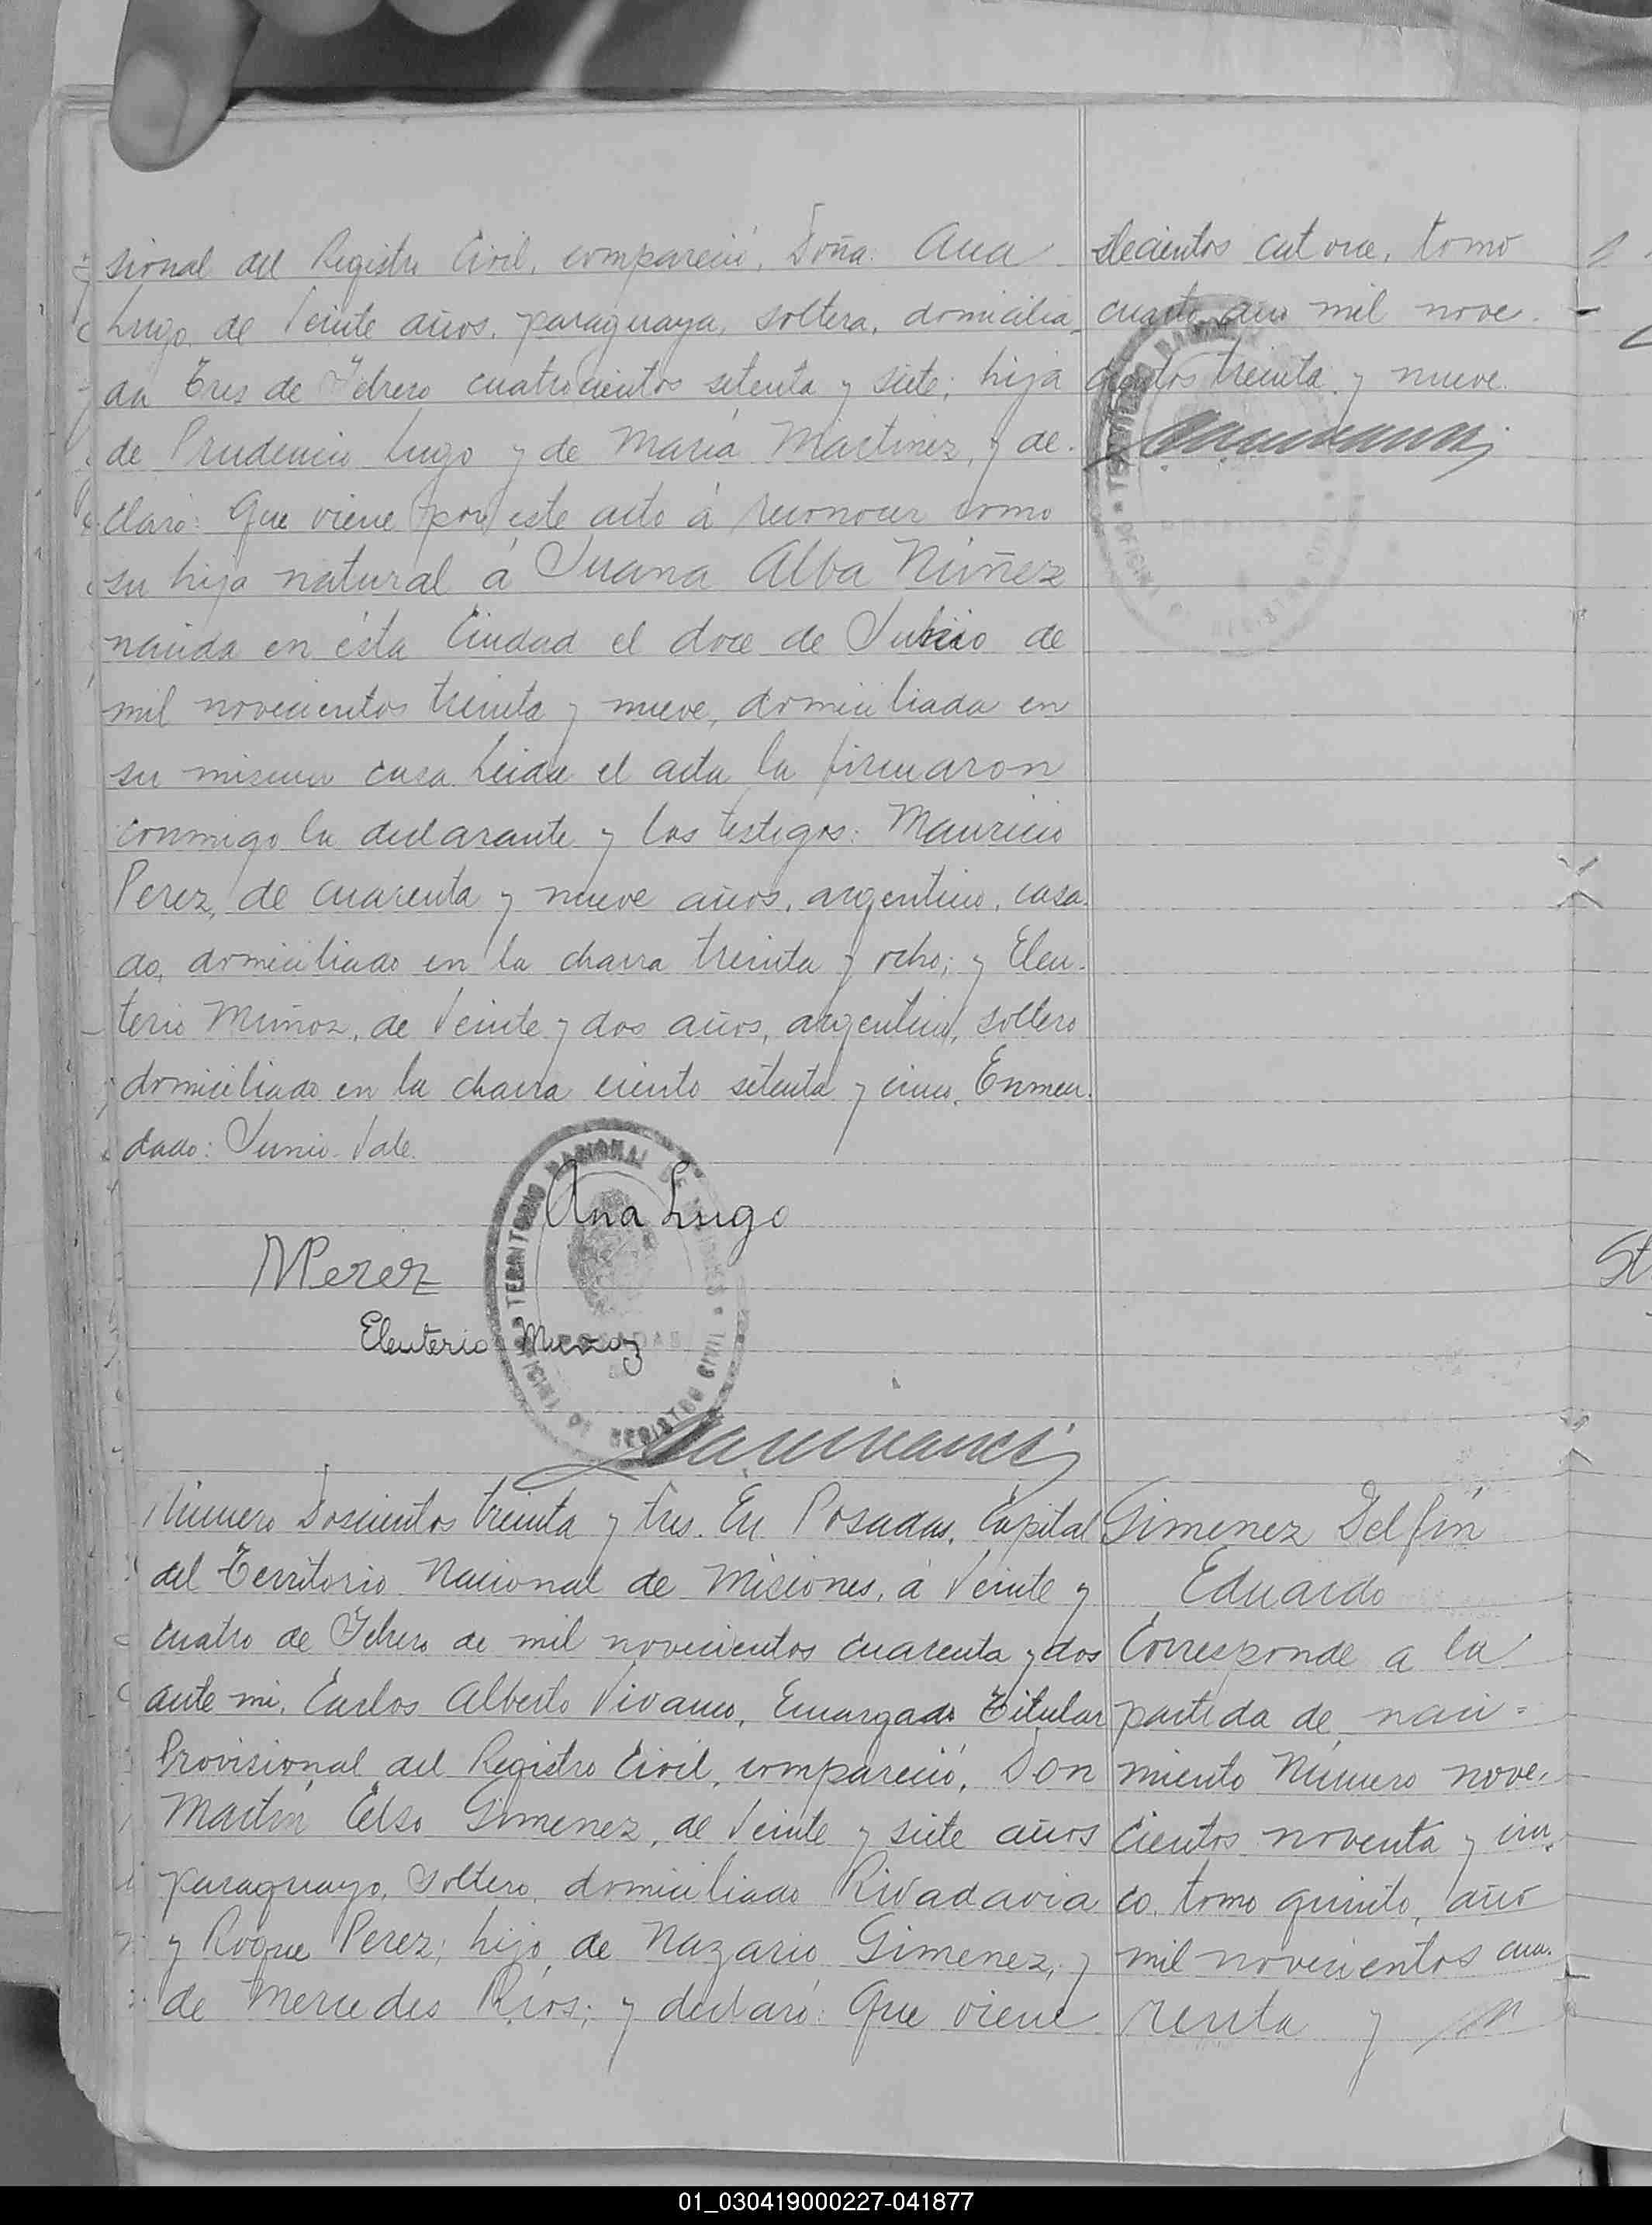 sional del Registro Civil, compareció, Doña. Ana
Lugo, de Veinte años, paraguaya, soltera, domicilia
da Tres de Febrero cuatrocientos setenta y siete; hija
de Prudencio Lugo y de María Martinez, y de-
claró: Que viene por este acto á reconocer como
su hija natural á Juana Alba Núñez
nacida en ésta Ciudad el doce de Junio de
mil novecientos treinta y nueve, domiciliada en
su misma casa. Leida el acta la firmaron
conmigo la declarante y los testigos: Mauricio
Perez, de cuarenta y nueve años, argentino, casa-
do, domiciliado en la chacra treinta y ocho; y Eleu-
terio Muñoz, de Veinte y dos años, argentino, soltero
domiciliado en la chacra ciento setenta y cinco. Enmen-
dado: Junio. Vale.
Ana Lugo
MPerez
Eleuterio Munoz
TERRITORIO NACIONAL DE MISIONES
POSADAS
OFICINA DE REGISTRO CIVIL
cientos catorce, tomo
cuarto año mil nove-
cientos treinta y nueve.
Número Doscientos treinta y tres. En Posadas, Capital
del Territorio Nacional de Misiones, á Veinte y
cuatro de Febrero de mil novecientos cuarenta y dos
ante mi, Carlos Alberto Vivanco, Encargado Titular
Provisional del Registro Civil, compareció, Don
Martín Celso Gimenez, de Veinte y siete años
paraguayo, soltero, domiciliado Rivadavia
y Roque Perez; hijo de Nazario Gimenez, y
de Mercedes Ríos; y declaró: Que viene
Gimenez Delfín
Eduardo
Corresponde a la
partida de naci-
miento Número nove-
cientos noventa y cin-
co, tomo quinto, año
mil novecientos cua-
renta y
01_030419000227-041877